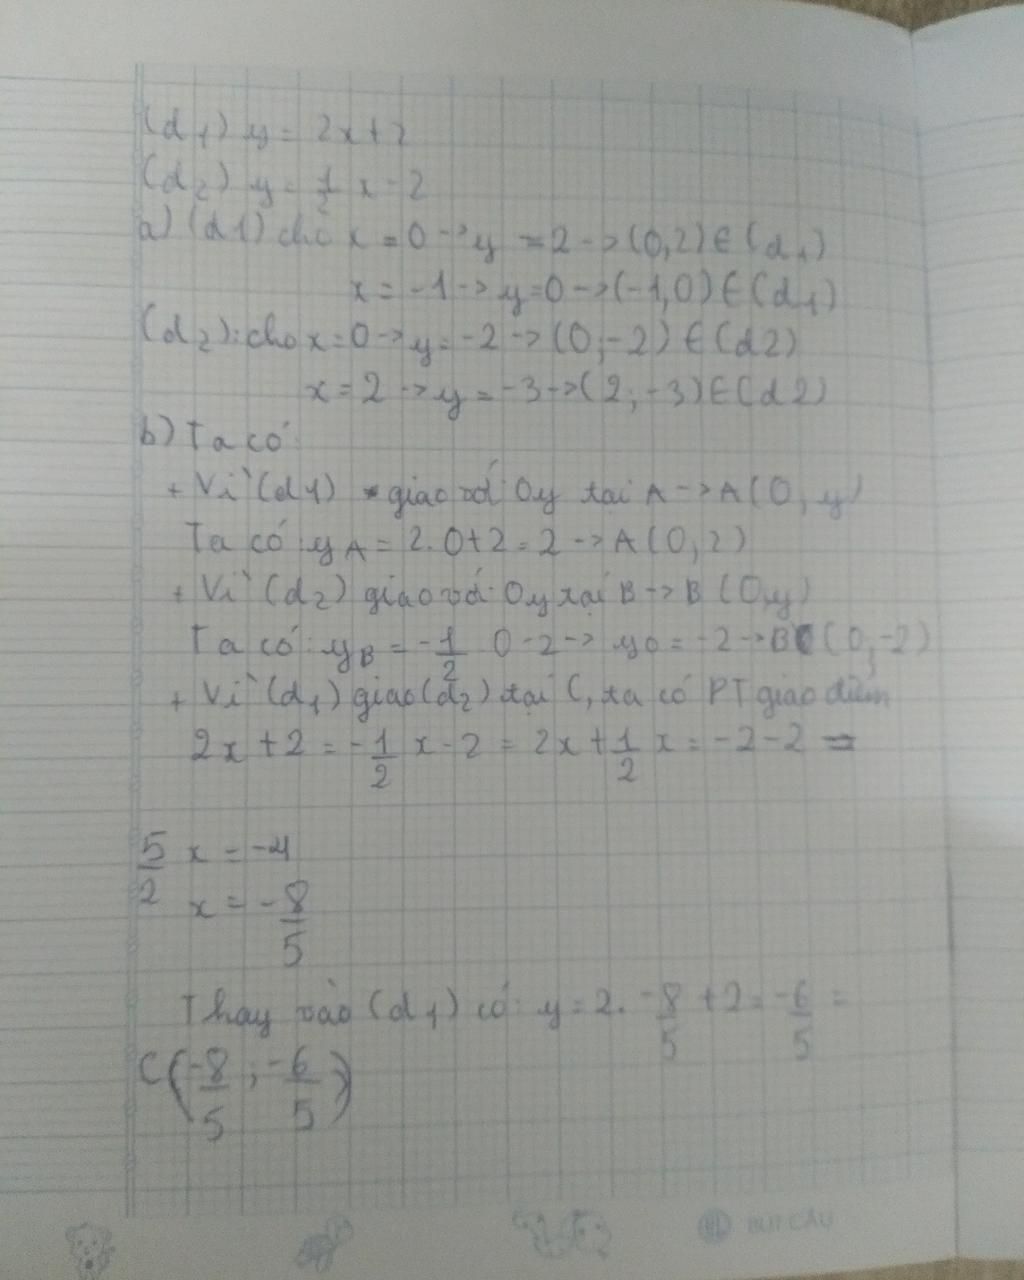 (d1) y = 2x+2
(d2) y = 1/2 x - 2
a) (d1) cho x = 0 -> y = 2 -> (0,2) ∈ (d1)
x = -1 -> y=0 -> (-1,0) ∈ (d1)
(d2): cho x=0 -> y = -2 -> (0;-2) ∈ (d2)
x = 2 -> y = -3 -> (2;-3) ∈ (d2)
b) Ta có:
+ Vì (d1) giao với Oy tại A -> A(0, y)
Ta có: yA = 2.0+2 = 2 -> A(0,2)
+ Vì (d2) giao với Oy tại B -> B (0,y)
Ta có: yB = -1/2 0 - 2 -> y0 = -2 -> B (0;-2)
+ Vì (d1) giao (d2) tại C, ta có PT giao điểm
2x + 2 = -1/2 x - 2 = 2x + 1/2 x = -2 - 2 =
5/2 x = -4
x = -8/5
Thay vào (d1) có: y = 2. -8/5 + 2 = -6/5 =
C(-8/5 ; -6/5)
BÚT CÂU